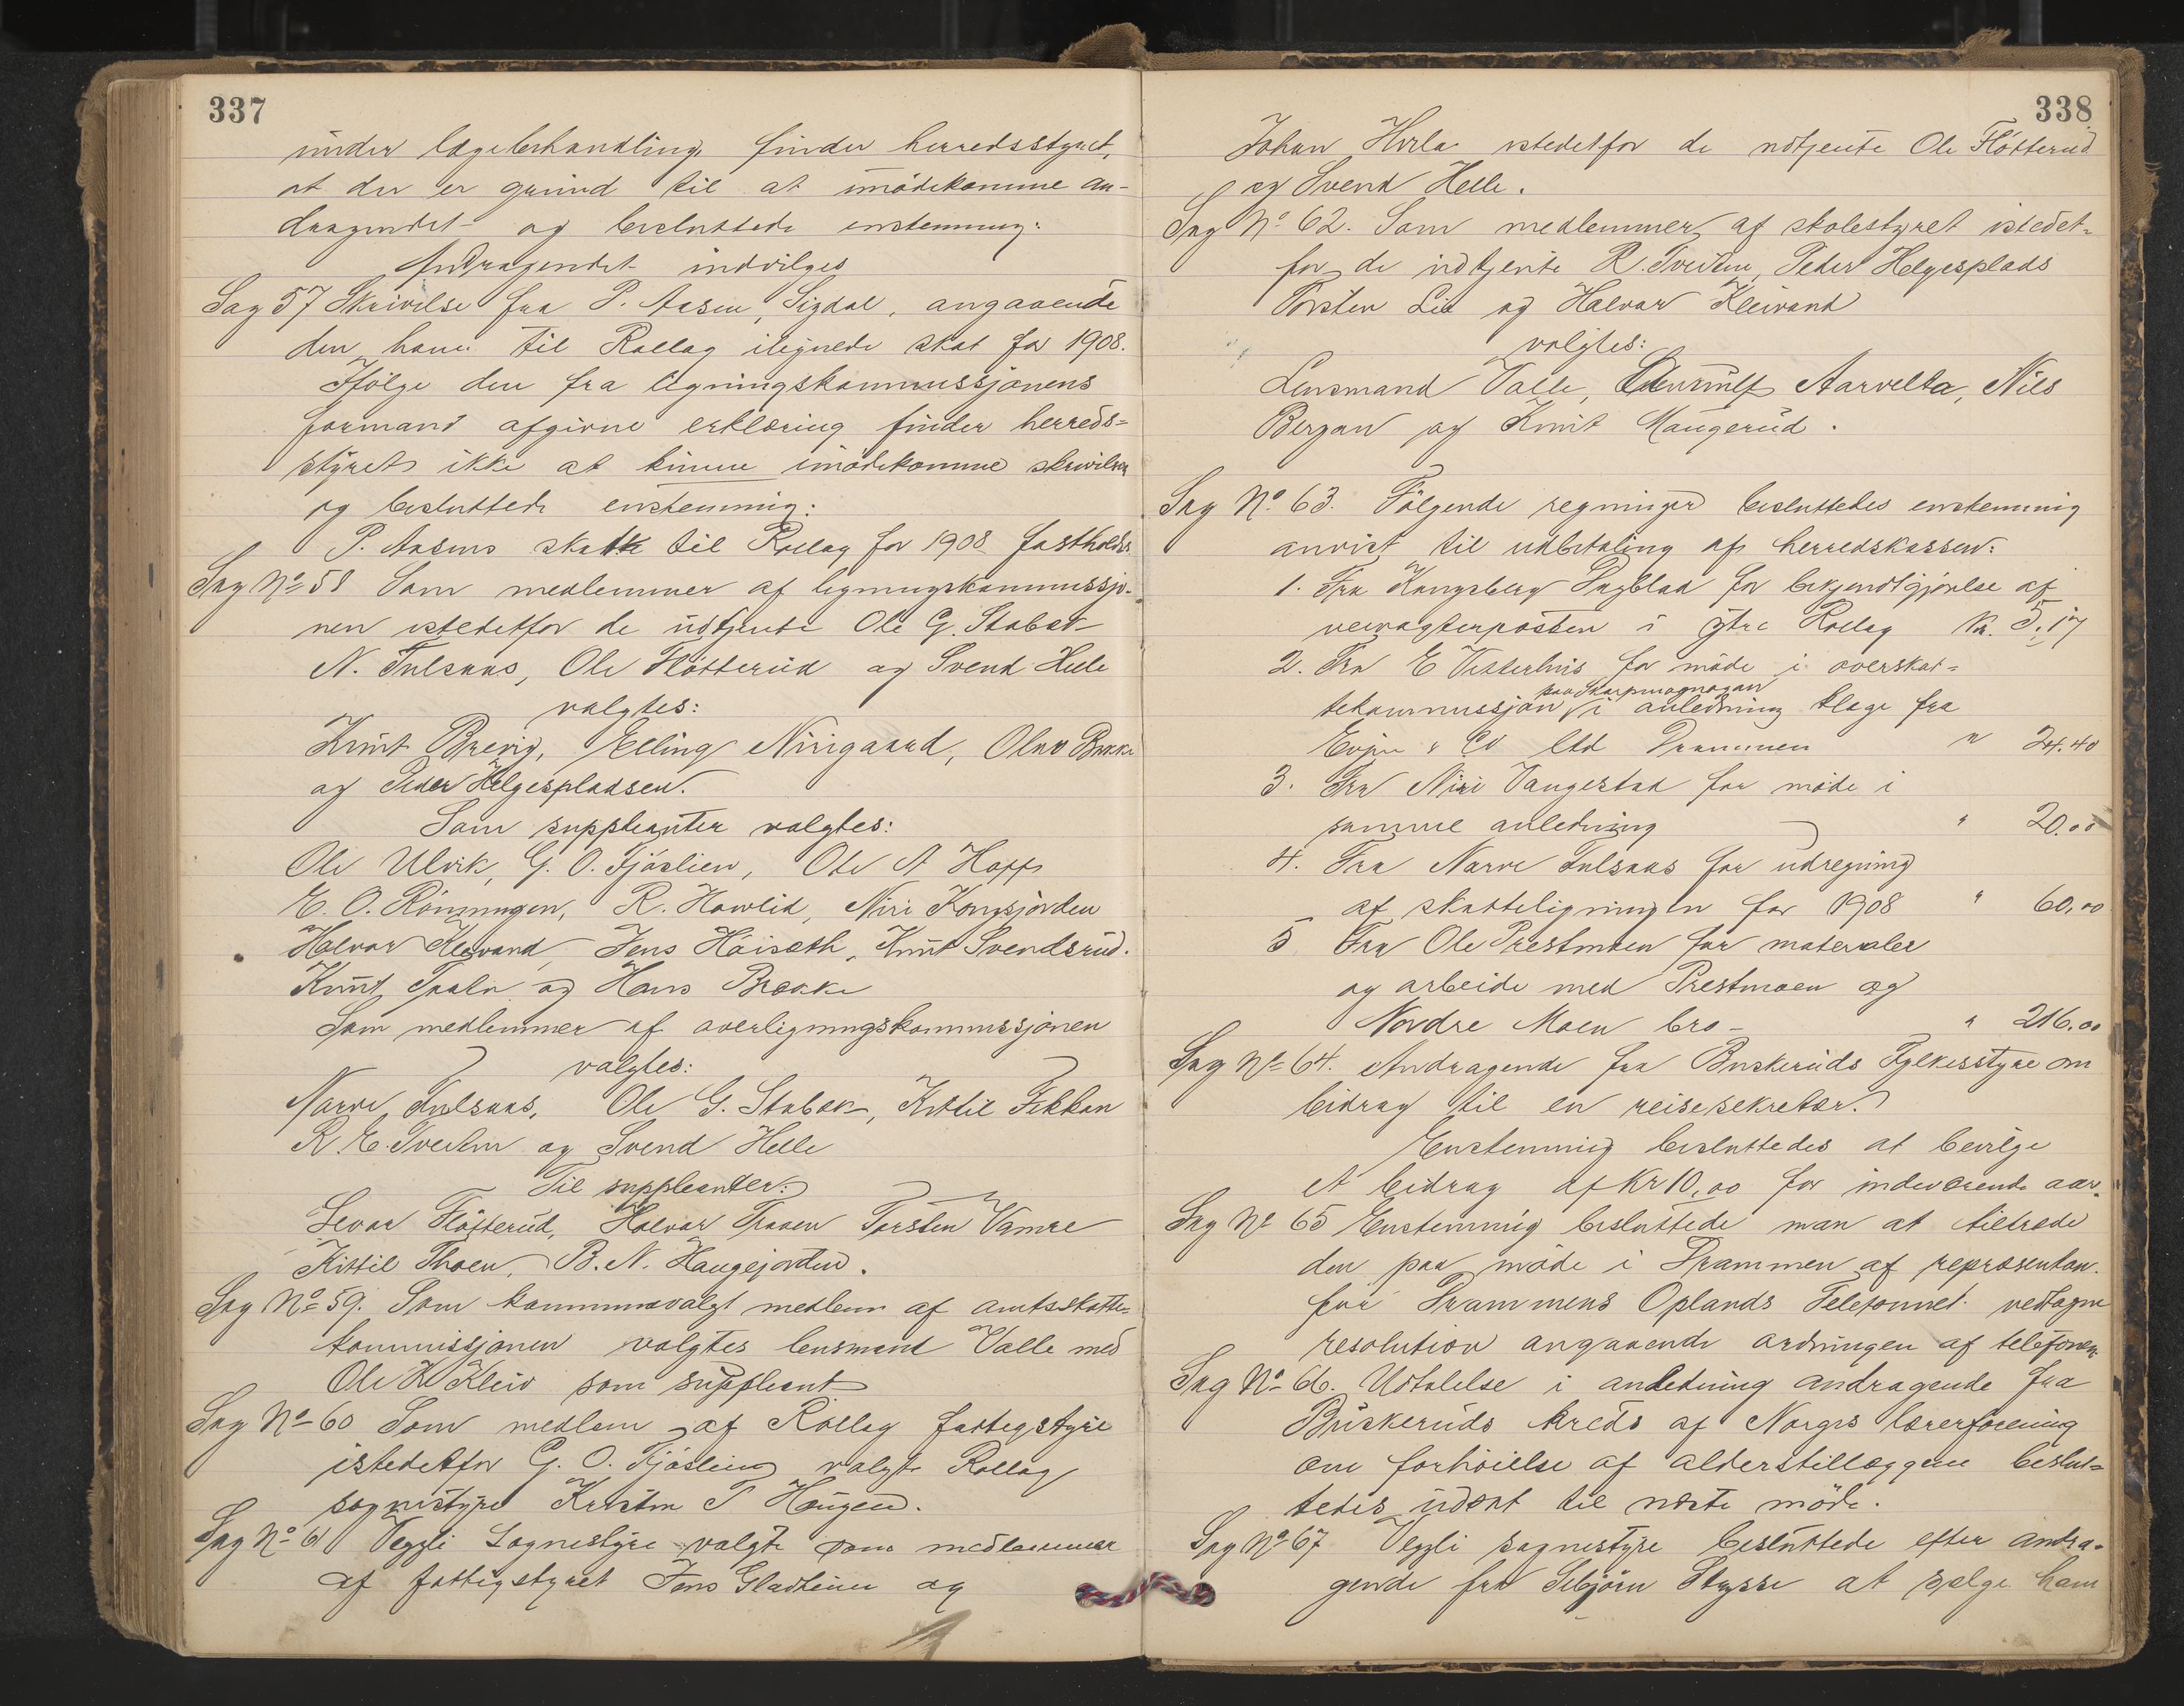 337
under lægebehandling finder herredsstyret,
at der er grund til at imödekomme an-
dragendet og besluttede enstemmig:
Andragendet indvilges
Sag 57 Skrivelse fra P. Aasen, Sigdal, angaaende
den ham til Rollag ilignede skat for 1908.
Ifölge den fra ligningskommissjonens
formand afgivne erklæring finder herreds=
styret ikke at kunne imödekomme skrivelsen
og besluttede enstemmig:
P. Aasens skatt til Rollag for 1908 fastholdes.
Sag No 58 Som medlemmer af ligningskommissjo-
nen istedetfor de udtjente Ole G. Stabæk
N. Fulsaas, Ole Flötterud og Svend Helle
valgtes:
Knut Brevig, Elling Nirigaard, Olav Brække
og Peder Helgespladsen.
Som suppleanter valgtes:
Ole Ulvik, G. O. Fjöslien, Ole A Hoff
E. O. Rönningen, R. Hawlid, Niri Kongsjorden
Halvor Kleivand, Jens Höisæth, Knut Svendsrud.
Knut Traaen og Hans Brække
Som medlemmer af overligningskommissjonen
valgtes:
Narve Fulsaas, Ole G. Stabæk, Kittil Fekkan
R. E. Tveiten og Svend Helle
Til suppleanter:
Sevar Flötterud, Halvor Traaen Torsten Vamre
Kittil Thoen, B. N. Haugejorden.
Sag No 59. Som kommunevalgt medlem af amtsskatte-
kommissjonen valgtes lensmand Valle med
Ole H Kleiv som suppleant
Sag No 60 Som medlem af Rollag fattigstyre
istedetfor G. O. Fjöslien valgte Rollag
sognestyre Kristen T Haugen.
Sag No 61 Veggli Sognestyre valgte som medlemmer
af fattigstyret Jens Gladheim og
338
Johan Horla istedetfor de udtjente Ole Flötterud
og Svend Helle.
Sag No 62. Som medlemmer af skolestyret istedet=
for de udtjente R. Tveiten, Peder Helgesplads
Torsten Lia og Halvor Kleivand
valgtes:
Lensmand Valle, Gunnulf Aarvelta, Nils
Bergan og Knut Maugerud.
Sag No. 63. Fölgende regninger besluttedes enstemmig
anvist til udbetaling af herredskassen:
1. Fra Kongsberg Dagblad for bekjendtgjörelse af
veivogterposten i Ytre Rollag Kr. 5.17
2. Fra E Vesterhus for möde i overskat=
paa Skarpmognagan
tekommissjon i anledning klage fra
Evju & Co Ltd Drammen " 24.40
3. Fra Niri Vangestad for möde i
samme anledning " 20.00
4. Fra Narve Fulsaas for udregning
af skatteligningen for 1908 " 60,00
5 Fra Ole Prestmoen for materialer
og arbeide med Prestmoen og
Nordre Moen bro - " 216.00
Sag No 64. Andragende fra Buskeruds Fylkesstyre om
bidrag til en reisesekretær.
Enstemmig besluttedes at bevilge
et bidrag af Kr 10,00 for indeværende aar.
Sag No 65 Enstemmig besluttede man at tiltræde
den paa möde i Drammen af repræsentan.
for Drammens Oplands Telefonnet vedtagne
resolution angaaende ordningen af telefonen
Sag No 66. Udtalelse i anledning andragende fra
Buskeruds kreds af Norges lærerforening
om forhöielse af alderstillæggene beslut=
tedes udsat til næste möde.
Sag No 67 Veggli sognestyre besluttede efter andra-
gende fra Sebjörn Stysse at sælge ham